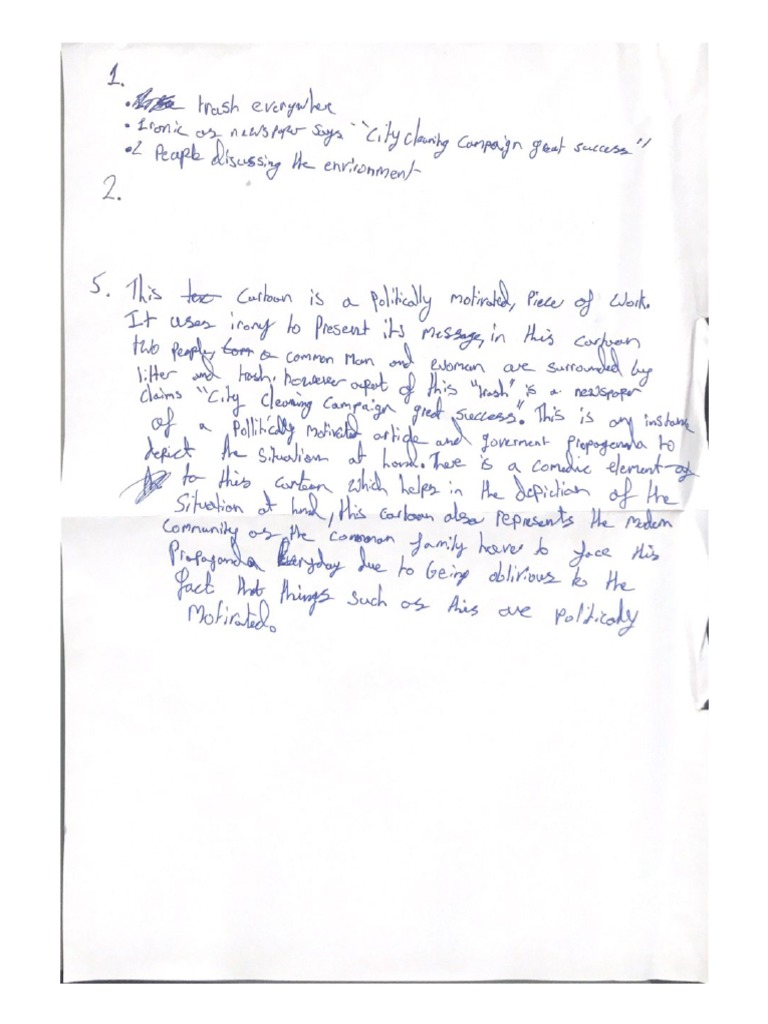 1.
• trash everywhere
• Ironic as newspaper says "City cleaning Campaign great success"
• 2 People discussing the environment
2.
5. This tex Cartoon is a politically motivated, Piece of work.
It uses irony to Present its message, in this cartoon
two people, common man and woman are surrounded by
litter and trash. however of this "trash" is a newspaper
claims "City Cleaning Campaign great success". This is an instance
of a Pollitically motivated article and goverment propaganda to
depict the situation at hand. There is a comedic element of
to this cartoon which helps in the depiction of the
Situation at hand, this cartoon also represents the modern
Community as the common family have to face this
Propaganda Everyday due to being oblivious to the
fact that things such as this are politically
Motivated.